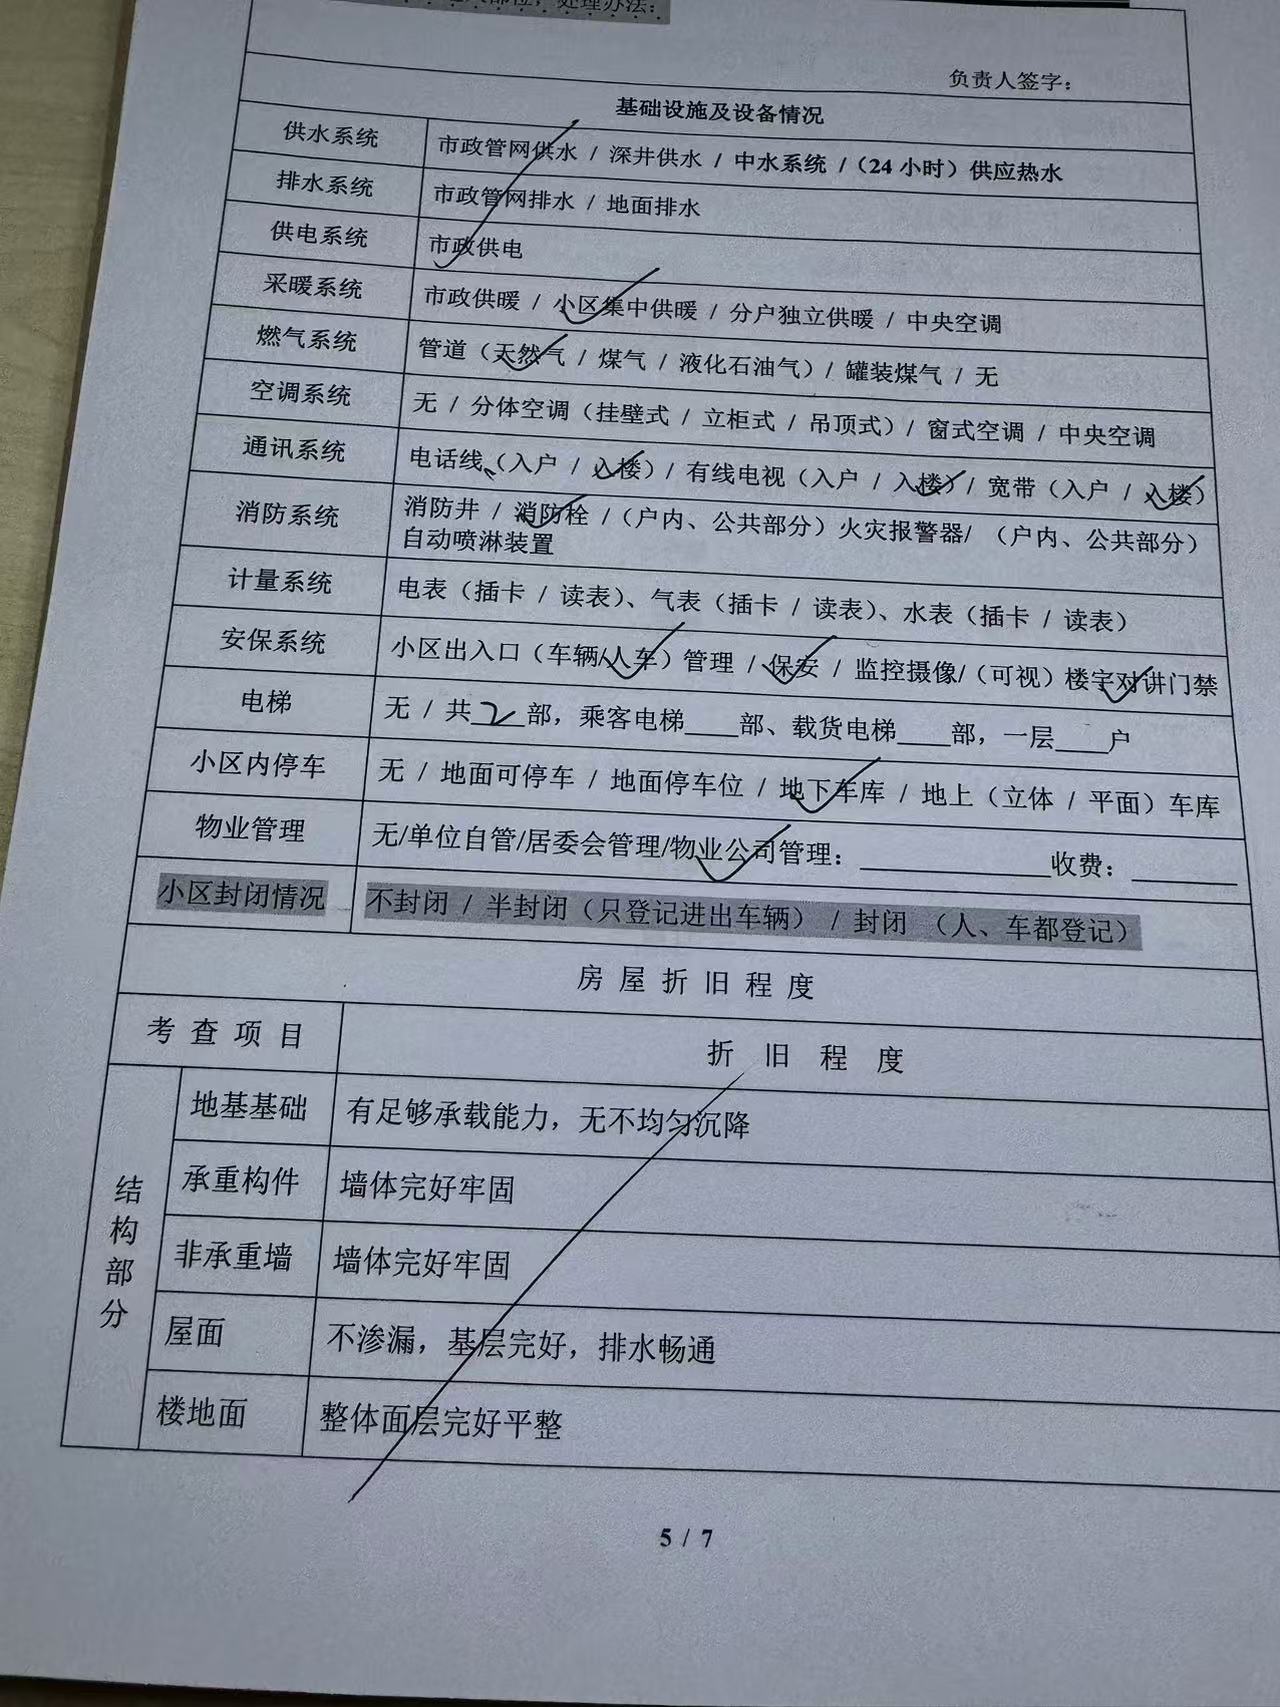 部位，处理办法：
负责人签字：
基础设施及设备情况
供水系统 市政管网供水 / 深井供水 / 中水系统 /（24 小时）供应热水
排水系统 市政管网排水 / 地面排水
供电系统 市政供电
采暖系统 市政供暖 / 小区集中供暖 / 分户独立供暖 / 中央空调
燃气系统 管道（天然气 / 煤气 / 液化石油气）/ 罐装煤气 / 无
空调系统 无 / 分体空调（挂壁式 / 立柜式 / 吊顶式）/ 窗式空调 / 中央空调
通讯系统 电话线（入户 / 入楼）/ 有线电视（入户 / 入楼）/ 宽带（入户 / 入楼）
消防系统 消防井 / 消防栓 /（户内、公共部分）火灾报警器/ （户内、公共部分）
自动喷淋装置
计量系统 电表（插卡 / 读表）、气表（插卡 / 读表）、水表（插卡 / 读表）
安保系统 小区出入口（车辆/人车）管理 / 保安 / 监控摄像/（可视）楼宇对讲门禁
电梯 无 / 共 2 部，乘客电梯____部、载货电梯____部，一层____户
小区内停车 无 / 地面可停车 / 地面停车位 / 地下车库 / 地上（立体 / 平面）车库
物业管理 无/单位自管/居委会管理/物业公司管理：______________收费：________
小区封闭情况 不封闭 / 半封闭（只登记进出车辆） / 封闭 （人、车都登记）
房屋折旧程度
考查项目 折旧程度
结构部分
地基基础 有足够承载能力，无不均匀沉降
承重构件 墙体完好牢固
非承重墙 墙体完好牢固
屋面 不渗漏，基层完好，排水畅通
楼地面 整体面层完好平整
5 / 7